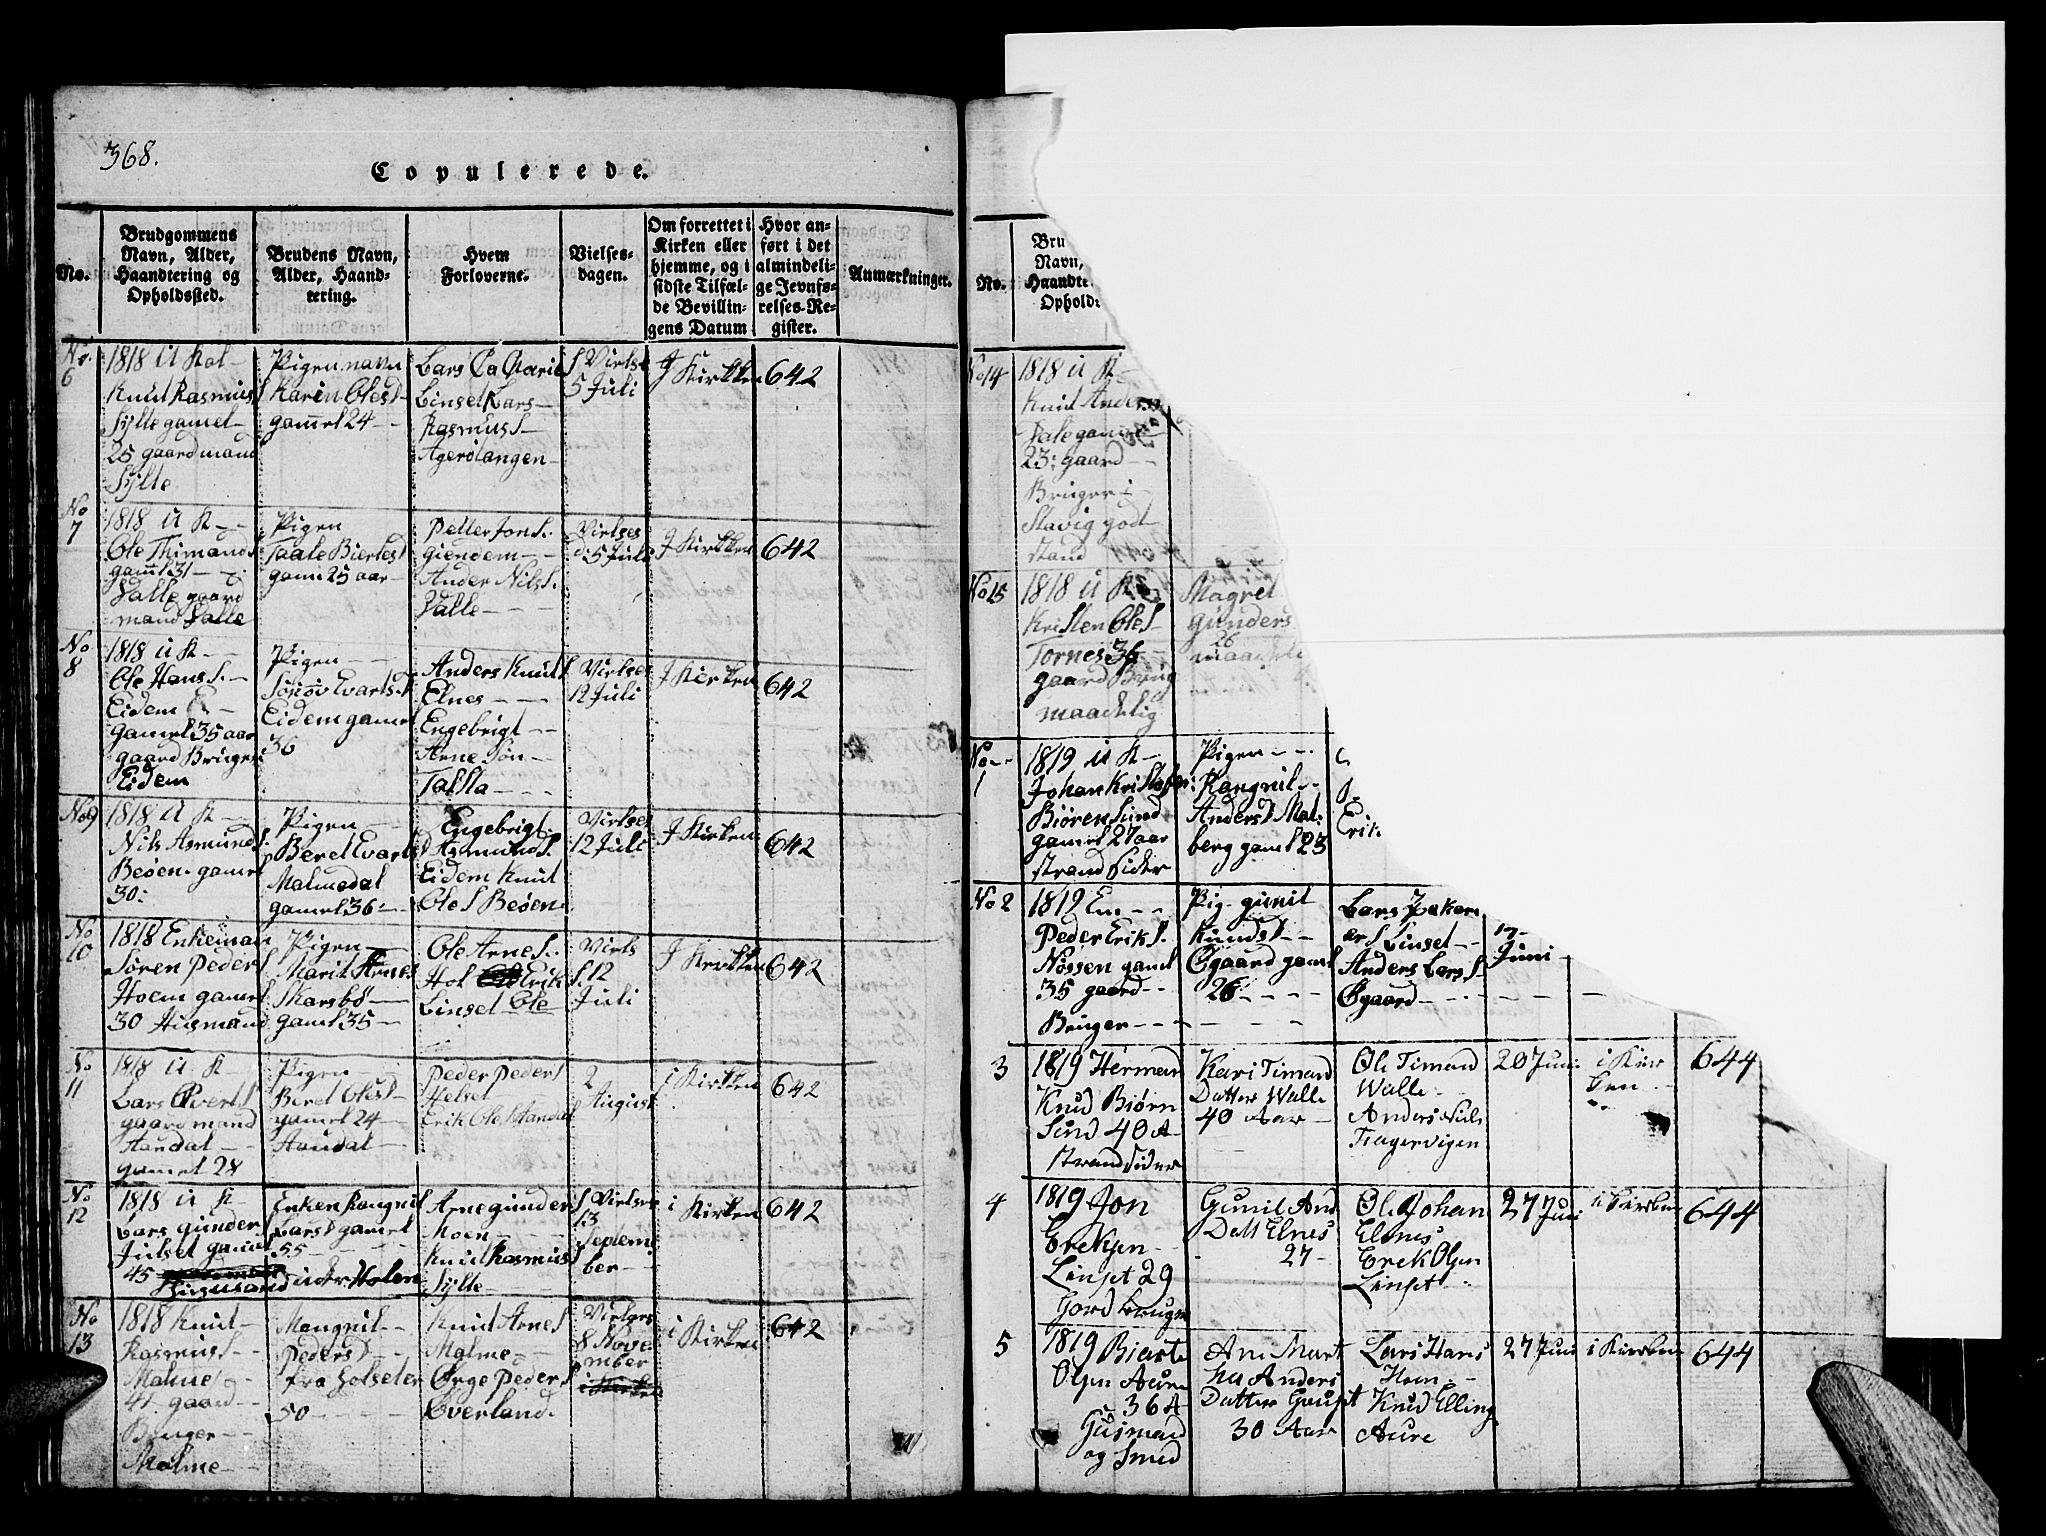 368.
Copulerede.
No.
Brudgommens
Navn, Alder,
Haandtering og
Opholdssted.
Brudens Navn,
Alder, Haand-
tering.
Hvem
Forloverne.
Vielses-
dagen.
Om forrettet i
Kirken eller
hjemme, og i
sidste Tilfæl-
de Bevillin-
gens Datum
Hvor an-
ført i det
almindeli-
ge Jevnfø-
relses-Re-
gister.
Anmærkninger.
No.
6
1818 U Kal-
Knud Rasmus S
Sylte gamel
25 gaard mand
Sylte
Pigen navn
Karen Oles d
gamel 24
Lars
Linset Lars
Rasmus S-
Agerølangen
Virlse
5 Juli
J Kirkken
642
No
7
1818 U K--
Ole Thimand S
gaml 31
Valle gaard
mand Valle
Pigen
Taale
gaml 25 aar
Petter Jon S.
giendem
Ander Nils S.
Valle
Virlses
d: 5 Juli
J Kirkken
642
No
8
1818 U K--
Ole Hans S.-
Eidem
gamel 35 aar
gaard Bruger
Eidem
Pigen
Eidem gamel
36
Anders Knud S
Elnes
Engebrigt
Arne Søn
Talsta
Virlses
12 Juli
J Kirken
642
No 9
1818 U K-
Nils Asmund S.
Beøen gamel
30:
Pigen
Beret Evarts d
Malmedal
gamel 36
Engebrigt
Asmund S.
Eidem Knud
Ole S Beøen
Virlses
12 Juli
J Kirken
642
No
10
1818 Enkeman
Søren Peder S
Hoem gamel
30 Husmand
Pigen
Marit Arnes
Skarsbø
gaml 35
Ole Arne S.
Hol Erik
Linset Ole
Virls
S. 12
Juli
J Kirkken
642
No
11
1818 U K
Lars Overt S
gaard mand
Haudal
gamel 28
Pigen
Beret Oles d
gamel 24
Haudal
Peder Peder S
Helset
Erik Ole S Handal
2
August
i Kirkken
642
No
12
1818 U K-
Lars gunder
Julset gamel
45
Husmand
Enken Rangnil
Lars d gamel
55
Holen
Arne gunder S
Moen
Knud Rasmus S
Sylte
Virlses
13
Septem
ber
i Kirken
642
No
13
1818 Knud
Rasmus S
Malme
41 gaard
Bruger
Malme
Mangnil
Peders d
fra Holseter
50
Knud Arne S
Malme
Ørge Peder S
Overland.
Virlses
8 Nove
mber
i Kirken
642
No.
Bru
Navn,
Haandte
Opholds
No 14
1818 U K-
Knud Ander
Dale gamel
23: gaard
Bruger i
Slavig god
stand
No 15
1818 U K
Kristen Ole S
Tornes 36
gaard Brug
maadelig
Magret
gunders
26
maadeli
No--
1
1819 U K-
Johan Kristofer
Biøren Sund
gamel 27 aar
strand sider
Pigen
Rangnil
Anders d Mal-
berg gaml 23
Erik
No 2
1819 Em
Peder Erik S.
Nøssen gaml
35 gaard
Bruger
Pig. gunil
Kunds d
Øgaard gaml
26
Lars Peter
er S Linset
Anders Lars S.
Øgaard
Juni
3
1819 Herman
Knud Biørn
Sund 40 A
strandsider
Kari Timand
Datter Walle
40 Aar
Ole Timand
Walle
Anders Niels
Tragervigen
20 Juni
i Kir
ken
644
4
1819 Jon
Ereksen
Linset 29
Gord bruger
Gunil And
Datt Elnes
27
Ole Johan
Elnes
Erek Olsen
Linset
27 Juni
i Kirken
644
5
1819 Biarte
Olsen Aure
36 A
Husmand
og Smed
Ane Mart
ha Anders
Datter Gaupset
30 Aar
Lars Hans
Hoem
Knud Elling
Aure
27 Juni
i Kirken
644